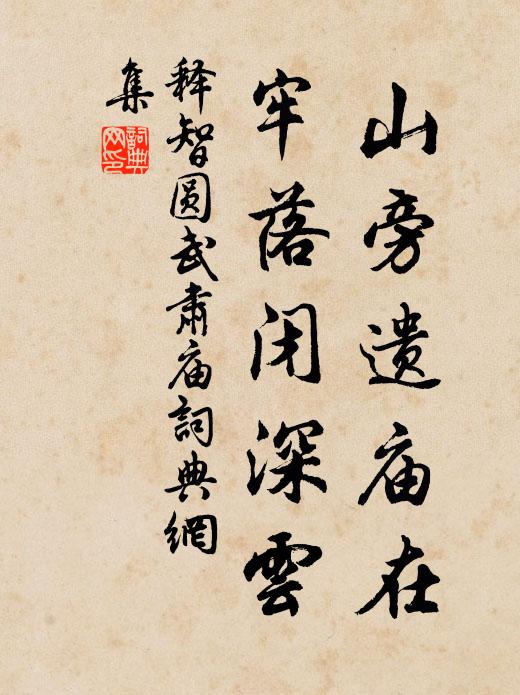 山旁遗庙在
牢落闭深雲
释智圆武肃庙詞典網
集
詞典
网印